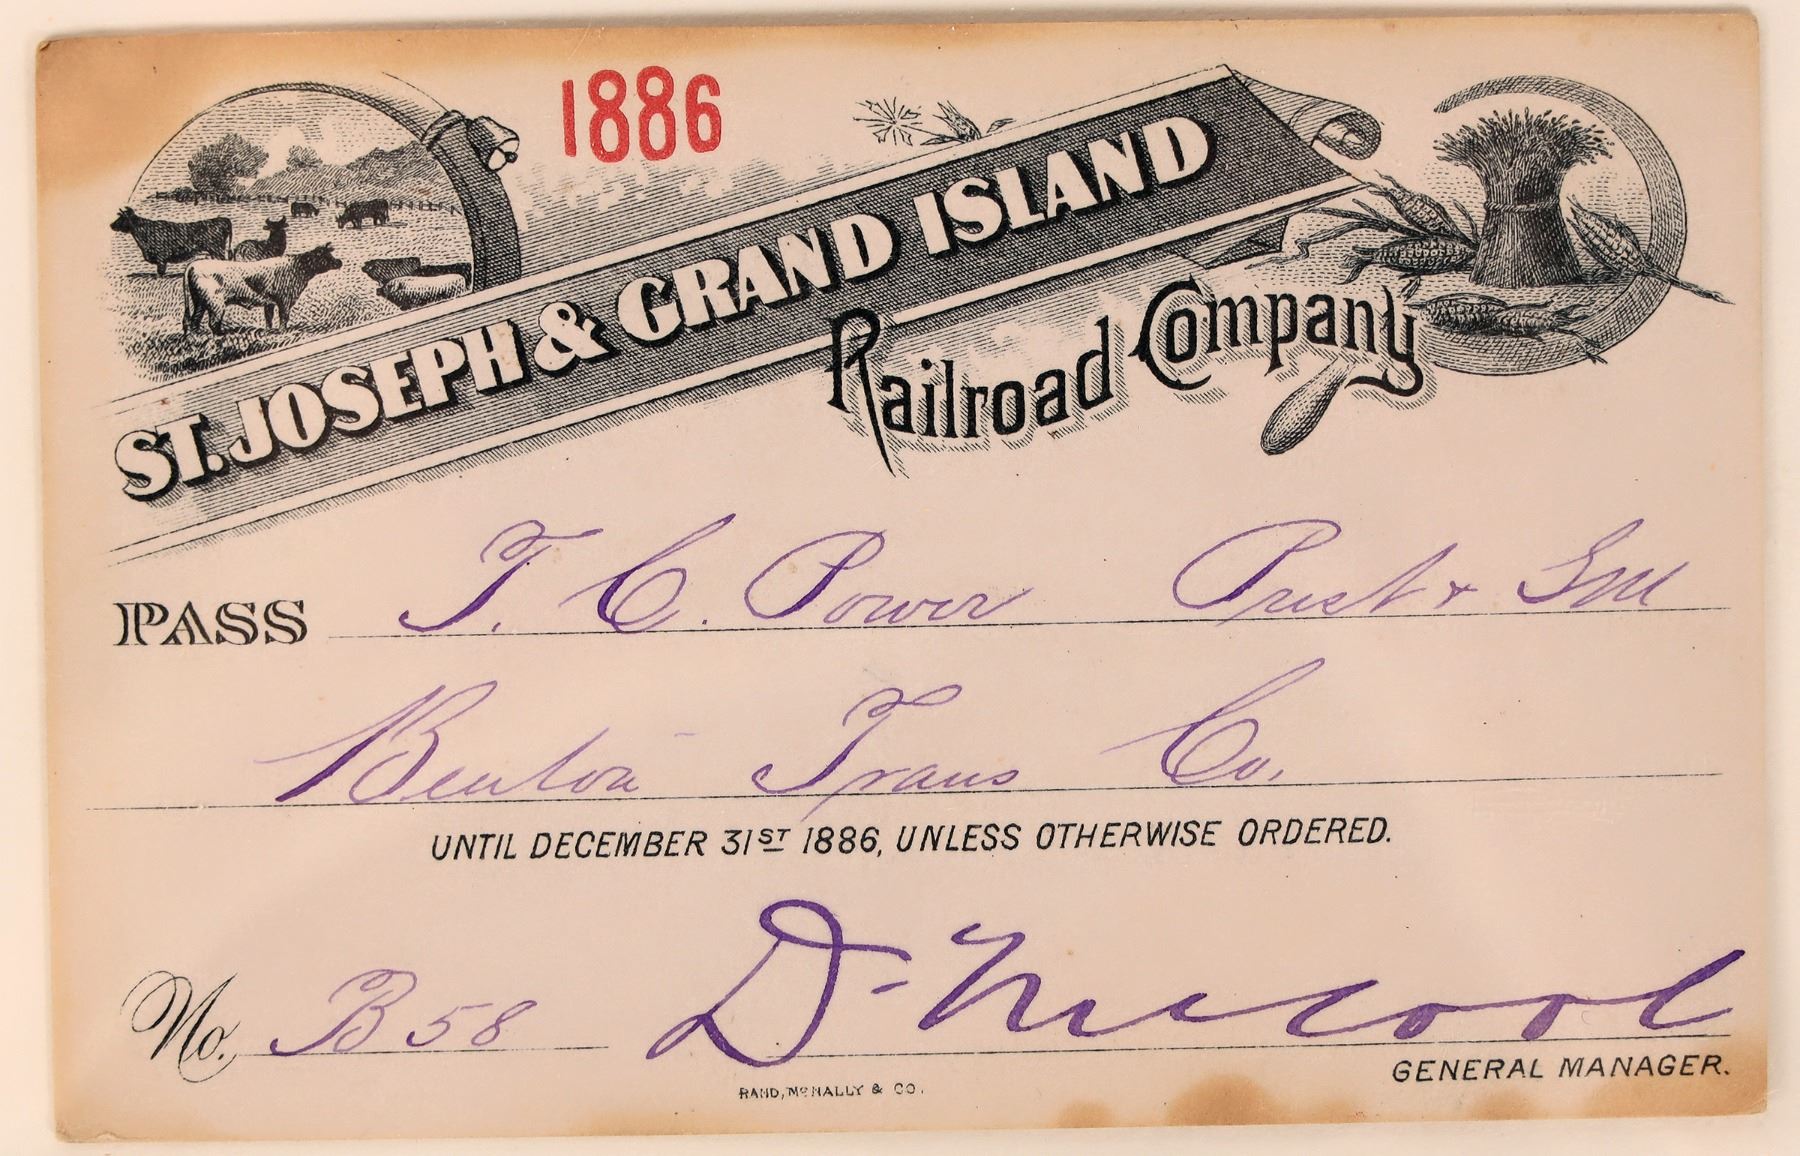 1886
ST. JOSEPH & GRAND ISLAND
Railroad Company
PASS T. C. Power Prest & GM
Benton Trans Co.
UNTIL DECEMBER 31ST 1886, UNLESS OTHERWISE ORDERED.
No. B 58 D. McCool
GENERAL MANAGER.
RAND, McNALLY & CO.